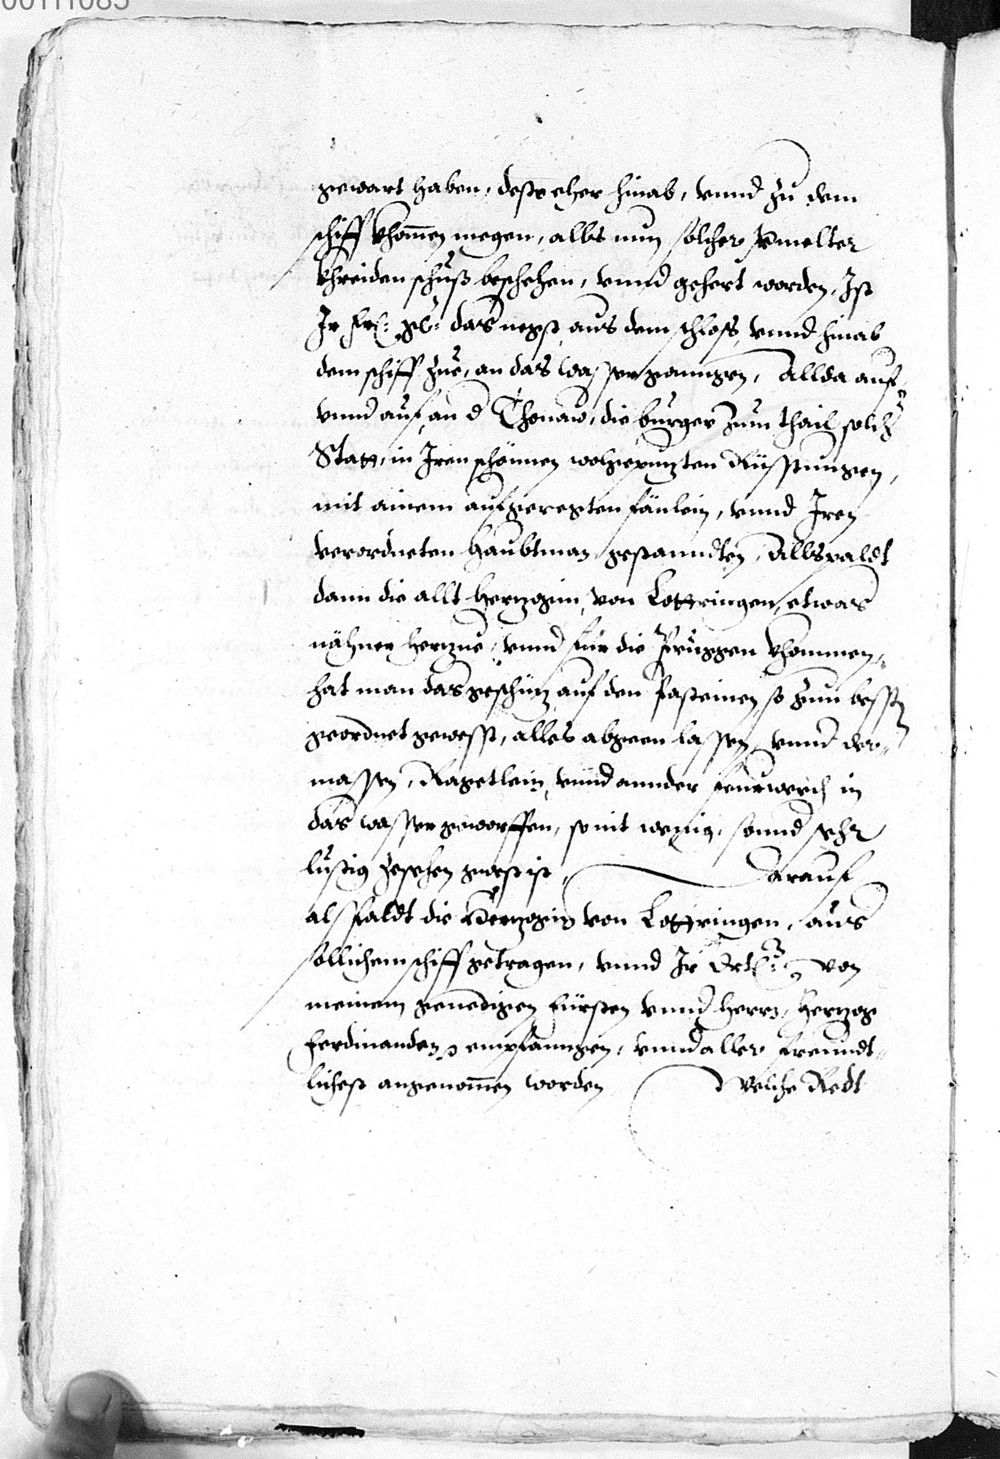 00111085
gewart haben, desto eher hinab, vnnd zu dem
schiff khomen megen, alls nun solcher vermelter
khreiden schuß beschehen, vnnd gehert worden, Ist
Ir frl: gl: das negst aus dem schloss, vnnd hinab
dem schiff zue, an das wasser ganngen, Allda auf
vnnd auf, an d Thonaw, die burger zum thail solcher
Statt, in Iren schönnen wolgepuzten Rüsstungen,
mit ainem aufgeregten fänlein, vnnd Iren
verordneten haubtman gestanndten, Allsvaldt
dann die allt herzogin, von Lottringen, etwas
nähner herzue, vnnd für die Pruggen khommen,
hat man das geschüz auf den Pasteinen, so zum besstn
geordnet gewesst, alles abgeen lassen, vnnd der-
massen, Ragetlein, vnnd annder feurwerch in
das wasser geworffen, so nit wenig, sonnd sehr
lustig zesehen gwest ist, Darauf
alsfaldt die Herzogin von Lottringen, aus
sollichem schiff getragen, vnnd Ir von
meinem genedigen fürsten vnnd herrn, herzog
Ferdinanden empfanngen, vnnd aller freundt-
lichest angenomen worden Welche Redt